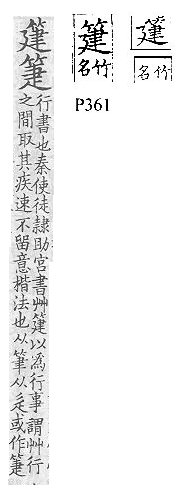 行書也秦使徒隸助宮書艸以為行事謂艸行
之間取其疾速不留意楷法也从筆从辵或作
竹名
P361
竹名